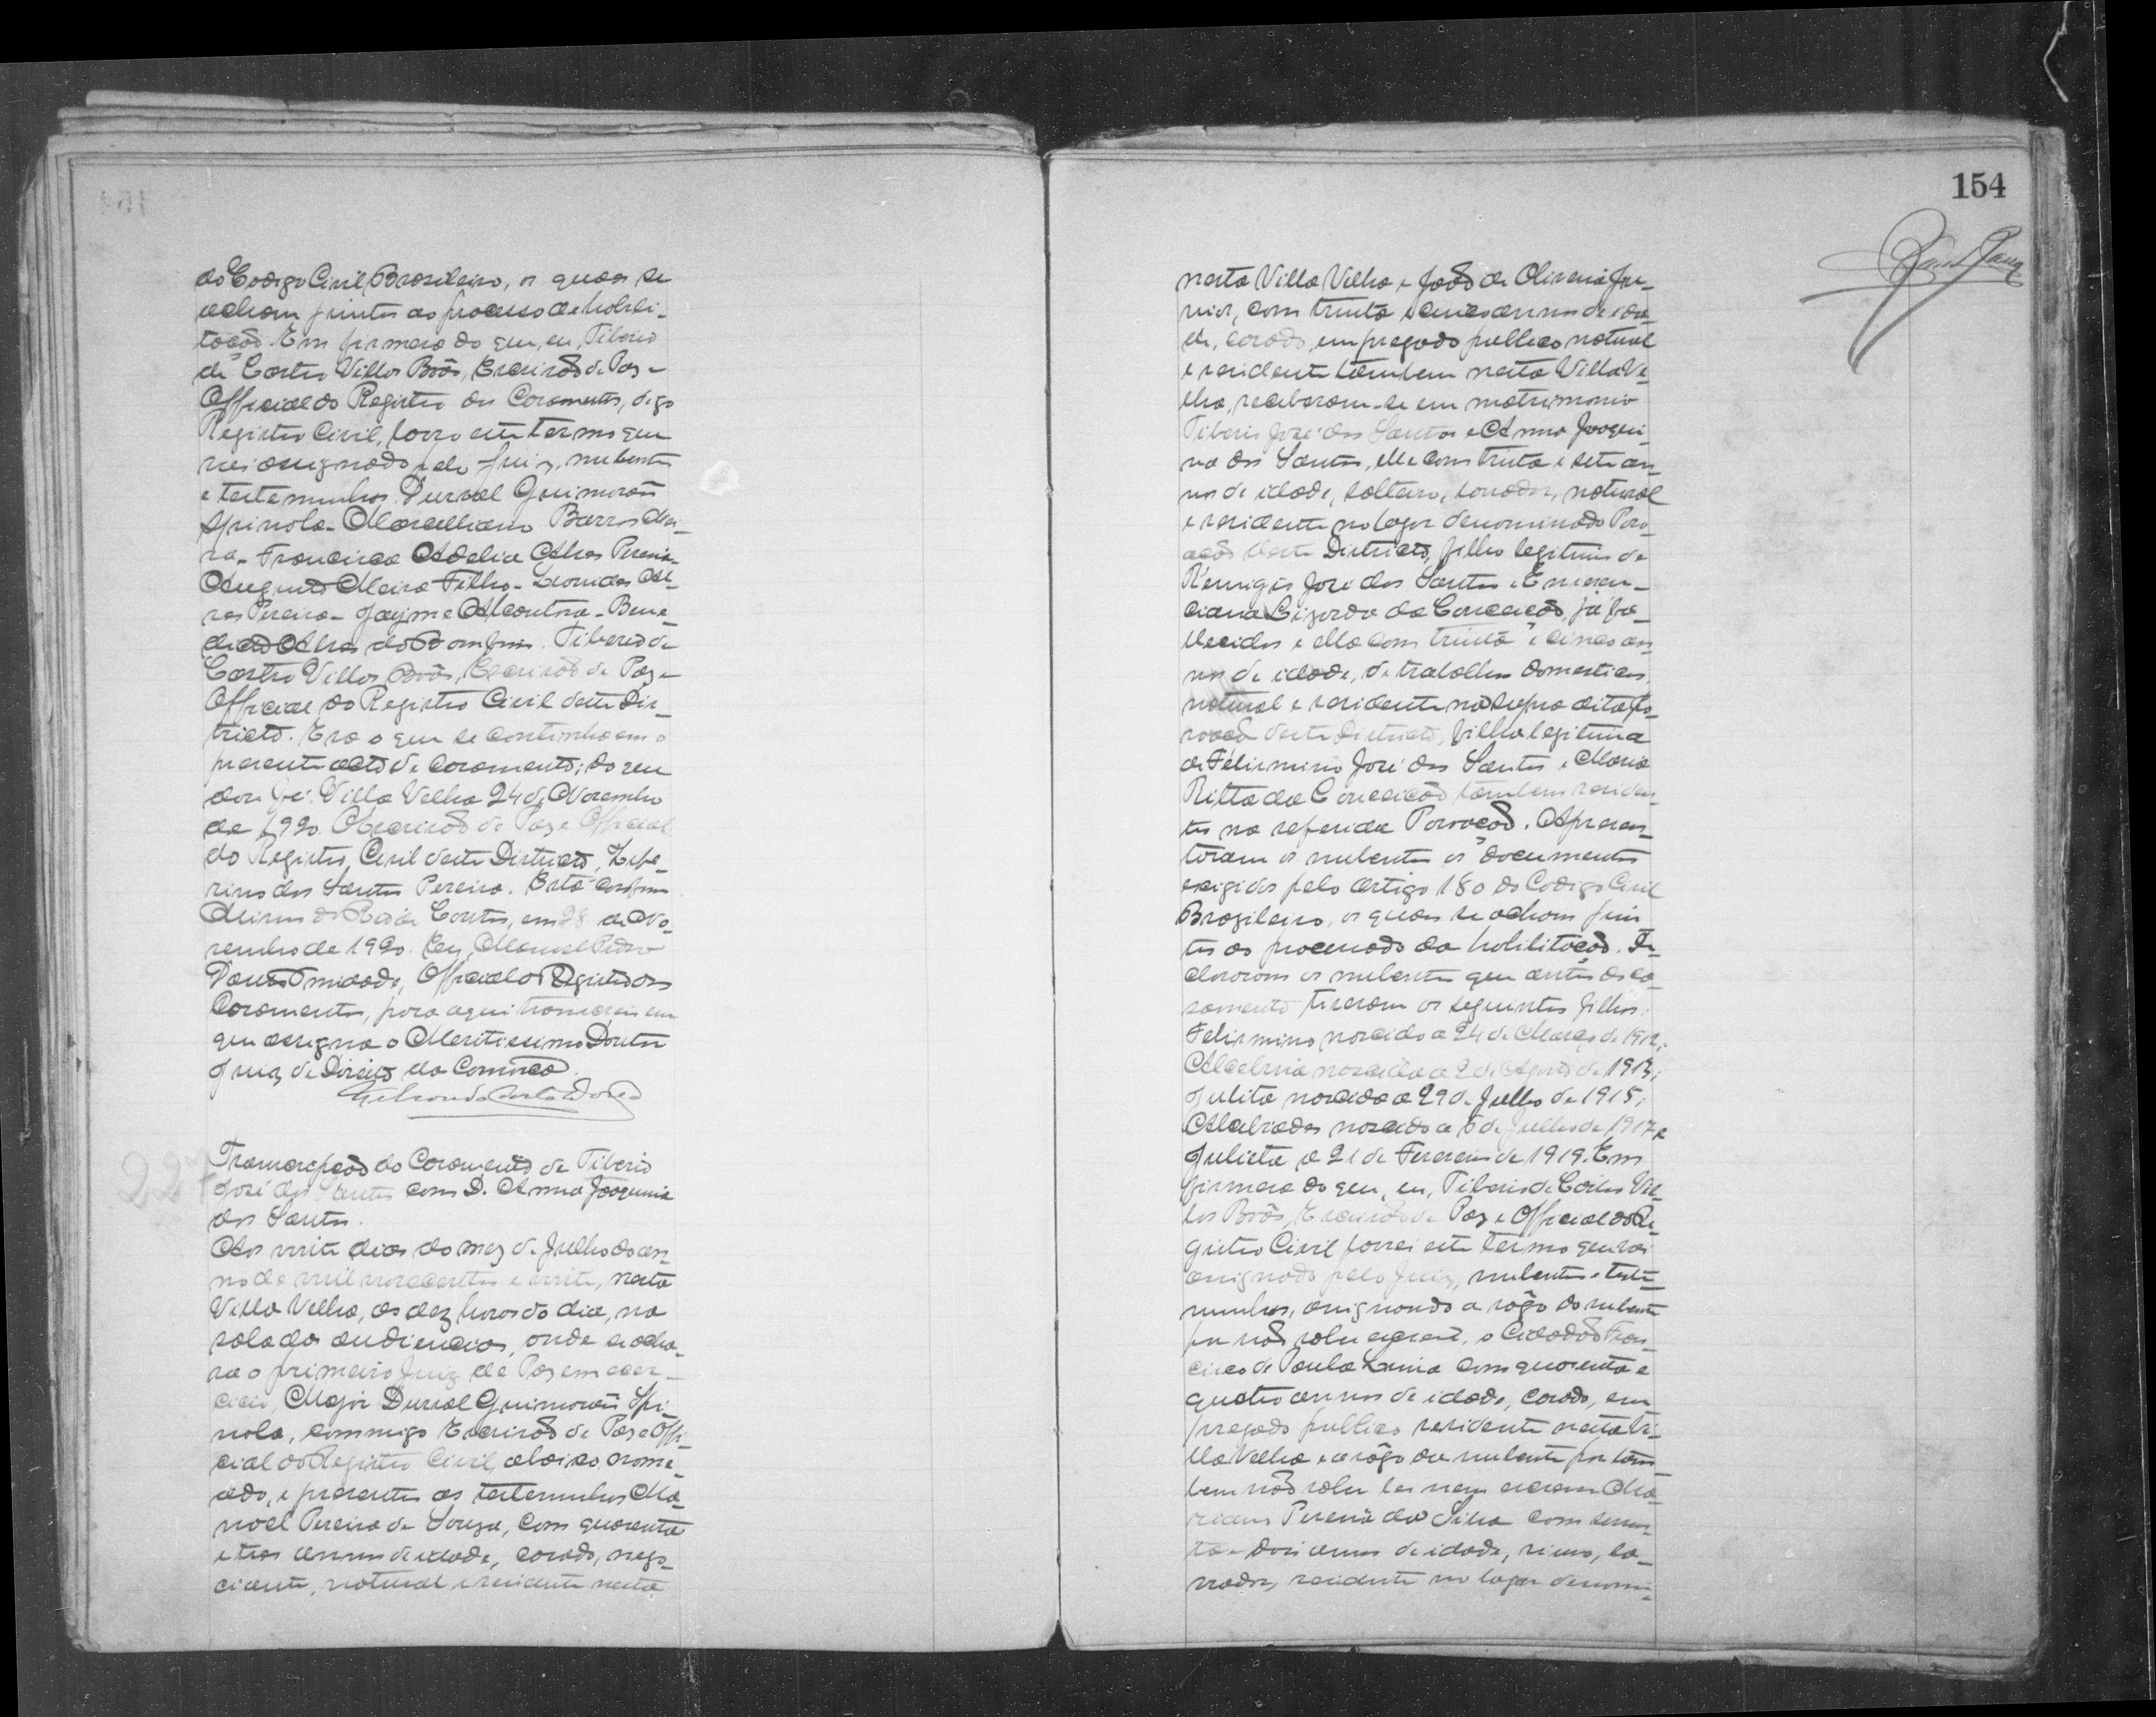 do Codigo Civil Brasileiro, os quaes se
acham juntos ao processo de habili-
tação. Em firmeza do que, eu, Tiberio
de Castro Villas Bôas, Escrivão de Paz e
Official do Registro dos Casamentos, digo
Registro Civil, lavro este termo que
vai assignado pelo Juiz, nubentes
e testemunhas. Durval Guimarães
Spinola. Marcelliano Barros
Francisca Adelia Alves Pereira.
Augusto Meira Filho. Leonidas Al-
ves Pereira. Jayme Alcantra. Bene-
dicto Alves do Bomfim. Tiberio de
Castro Villas Bôas, Escrivão de Paz e
Official do Registro Civil deste Dis-
tricto. Era o que se continha em o
presente acto de casamento; do que
dou fé. Villa Velha 24 de Novembro
de 1920. O Escrivão de Paz e Official
do Registro Civil deste Districto, Zefe-
rino dos Santos Pereira. Está conforme
Minas do Rio de Contas, em 28 de No-
vembro de 1920. Eu, Manoel Pedro
Official do Registro dos
Casamentos, para aqui transcrevi em
que assigna o Meritissimo Doutor
Juiz de Direito da Comarca.
227
Transcripção do Casamento de Tiberio
José dos Santos com D. Anna Joaquina
dos Santos.
Aos vinte dias do mez de Julho do an-
no de mil novecentos e vinte, nesta
Villa Velha, as dez horas do dia, na
sala das audiencias, onde se acha-
va o primeiro Juiz de Paz em exer-
cicio, Major Durval Guimarães Spi-
nola, commigo Escrivão de Paz e Offi-
cial do Registro Civil abaixo nome-
ado, e presentes as testemunhas Ma-
noel Pereira de Souza, com quarenta
e tres annos de idade, casado, nego-
ciante, natural e residente nesta
154
nesta Villa Velha e João de Oliveira Ju-
nior, com trinta e cinco annos de ida-
de, casado, empregado publico natural
e residente tambem nesta Villa Ve-
lha, receberam-se em matrimonio
Tiberio José dos Santos e Anna Joaqui-
na dos Santos, elle com trinta e sete an-
nos de idade, solteiro, lavrador, natural
e residente no logar denominado Povo-
ação deste Districto, filho legitimo de
Remigio José dos Santos e Emeren-
ciana Lizarda da Conceição, já fal-
lecidos e ella com trinta e cinco an-
nos de idade, de trabalhos domesticos,
natural e residente na supra dita Po-
voação deste Districto, filha legitima
de Felismino José dos Santos e Maria
Ritta da Conceição tambem residen-
tes na referida Povoação. Apresen-
taram os nubentes os documentos
exigidos pelo artigo 180 do Codigo Civil
Brazileiro, os quaes se acham jun-
tos ao processado da habilitação. De-
clararam os nubentes que antes do ca-
samento tiveram os seguintes filhos:
Felismino nascido a 24 de Março de 1912;
nascida a 2 de Agosto de 1913;
Julita nascida a 29 de Julho de 1915;
Alcebiades nascido a 5 de Julho de 1917 e
Julieta a 21 de Fevereiro de 1919. Em
firmeza do que, eu, Tiberio de Castro Vil-
las Bôas, Escrivão de Paz e Official do Re-
gistro Civil lavrei este termo que vai
assignado pelo Juiz, nubentes e teste-
munhas, assignando a rôgo do nubente
por não saber escrever, o Cidadão Fran-
cisco de Paula com quarenta e
quatro annos de idade, casado, em-
pregado publico residente nesta Vi-
lla Velha e a rôgo da nubente por tam-
bem não saber ler nem escrever
Pereira da Silva com sessen-
ta e dois annos de idade, viuvo, la-
vrador, residente no logar denomi-